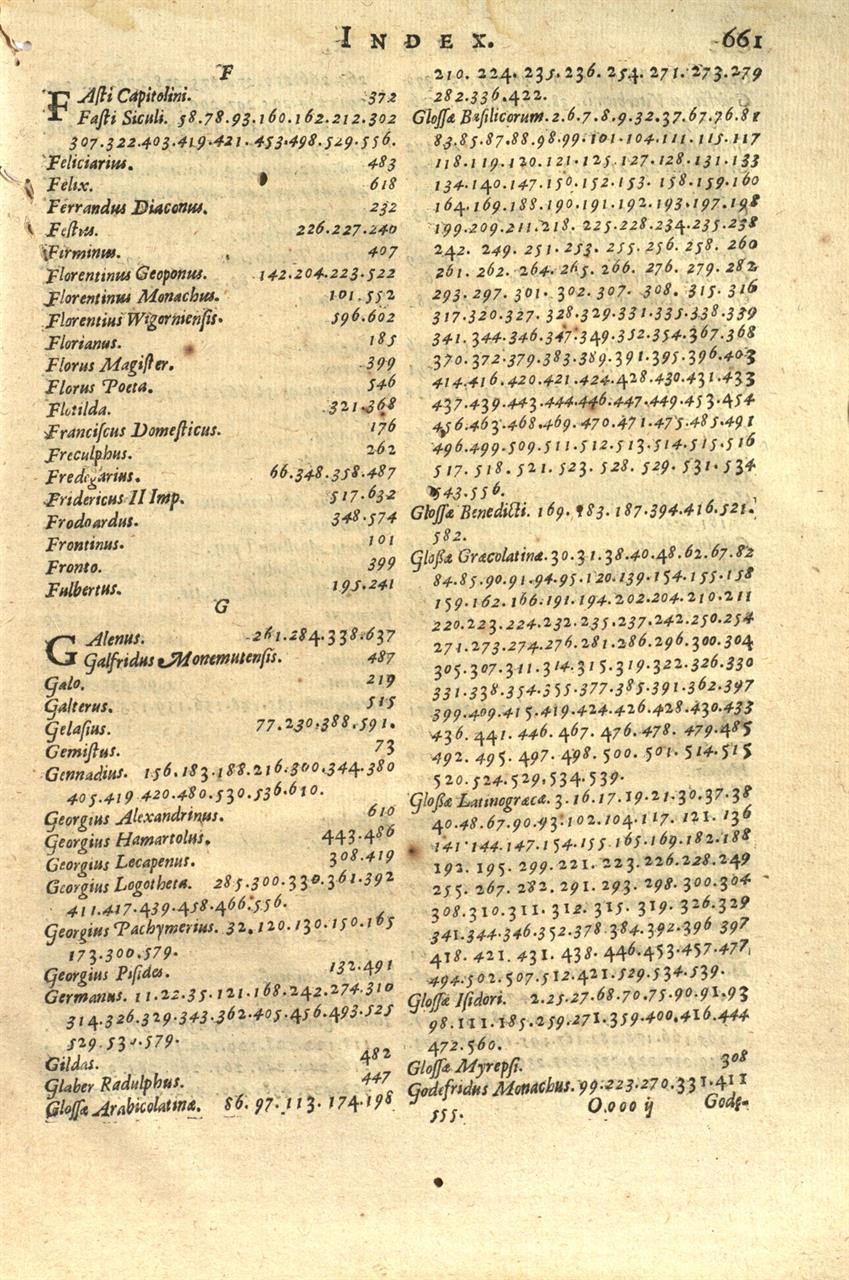 INDEX. 661
F
FAſti Capitolini. 372
Faſti Siculi. 58.78.93.160.162.212.302
307.322.403.419.421.453.498.529.556.
Feliciarius. 483
Felix. 618
Ferrandus Diaconus. 232
Feſtus. 226.227.240
Firminus. 407
Florentinus Geoponus. 142.204.223.522
Florentinus Monachus. 101.552
Florentius Wigornienſis. 596.602
Florianus. 185
Florus Magiſter. 399
Florus Poeta. 546
Flotilda. 321.368
Franciſcus Domeſticus. 176
Freculphus. 262
Fredegarius. 66.348.358.487
Fridericus II Imp. 517.632
Frodoardus. 348.574
Frontinus. 101
Fronto. 399
Fulbertus. 195.241
G
GAlenus. 261.284.338.637
Galfridus Monemutenſis. 487
Galo. 219
Galterus. 515
Gelaſius. 77.230.388.591.
Gemiſtus. 73
Gennadius. 156.183.188.216.300.344.380
405.419 420.480.530.536.610.
Georgius Alexandrinus. 610
Georgius Hamartolus. 443.486
Georgius Lecapenus. 308.419
Georgius Logotheta. 285.300.330.361.392
411.417.439.458.466.556.
Georgius Pachymerius. 32.120.130.150.165
173.300.579.
Georgius Piſides. 132.491
Germanus. 11.22.35.121.168.242.274.310
314.326.329.343.362.405.456.493.525
529. 579.
Gildas. 482
Glaber Radulphus. 447
Gloſſæ Arabicolatinæ. 86.97.113.174.198
210. 224. 235.236. 254. 271.273.279
282.336.422.
Gloſſæ Baſilicorum.2.6.7.8.9.32.37.67.76.81
83.85.87.88.98.99.101.104.111.115.117
118.119.120.121.125.127.128.131.133
134.140.147.150.152.153. 158.159.160
164.169.188.190.191.192.193.197.198
199.209.211.218. 225.228.234.235.238
242. 249. 251.253. 255.256. 258. 260
261. 262. 264.265. 266. 276. 279. 282
293.297. 301. 302.307. 308. 315. 316
317.320.327. 328.329.331.335.338.339
341. 344.346.347.349.352.354.367.368
370.372.379.383.389.391.395.396.403
414.416.420.421.424.428.430.431.433
437.439.443.444.446.447.449.453.454
456.463.468.469.470.471.475.485.491
496.499.509.511.512.513.514.515.516
517. 518. 521. 523. 528. 529. 531. 534
543.556.
Gloſſæ Benedicti. 169. 183. 187.394.416.521.
582.
Gloßæ Græcolatinæ.30.31.38.40.48.62.67.82
84.85.90.91.94.95.120.139.154.155.158
159.162.166.191.194.202.204.210.211
220.223.224.232.235.237.242.250.254
271.273.274.276.281.286.296.300.304
305.307.311.314.315.319.322.326.330
331.338.354.355.377.385.391.362.397
399.409.415.419.424.426.428.430.433
436. 441. 446. 467. 476. 478. 479.485
492. 495. 497. 498. 500. 501. 514.515
520.524.529.534.539.
Gloßæ Latinogræcæ.3.16.17.19.21.30.37.38
40.48.67.90.93.102.104.117. 121. 136
141 144.147.154.155.165.169.182.188
192. 195. 299.221. 223.226.228.249
255. 267. 282. 291. 293. 298. 300.304
308.310.311. 312. 315. 319. 326.329
341.344.346.352.378.384.392.396 397
418. 421. 431. 438. 446.453.457.477
494.502.507.512.421.529.534.539.
Gloſſæ Iſidori. 2.25.27.68.70.75.90.91.93
98.111.185.259.271.359.400.416.444
472.560.
Gloſſæ Myrepſi. 308
Godefridus Monachus. 99.223.270.331.411
555.
Oooo ij Gode-